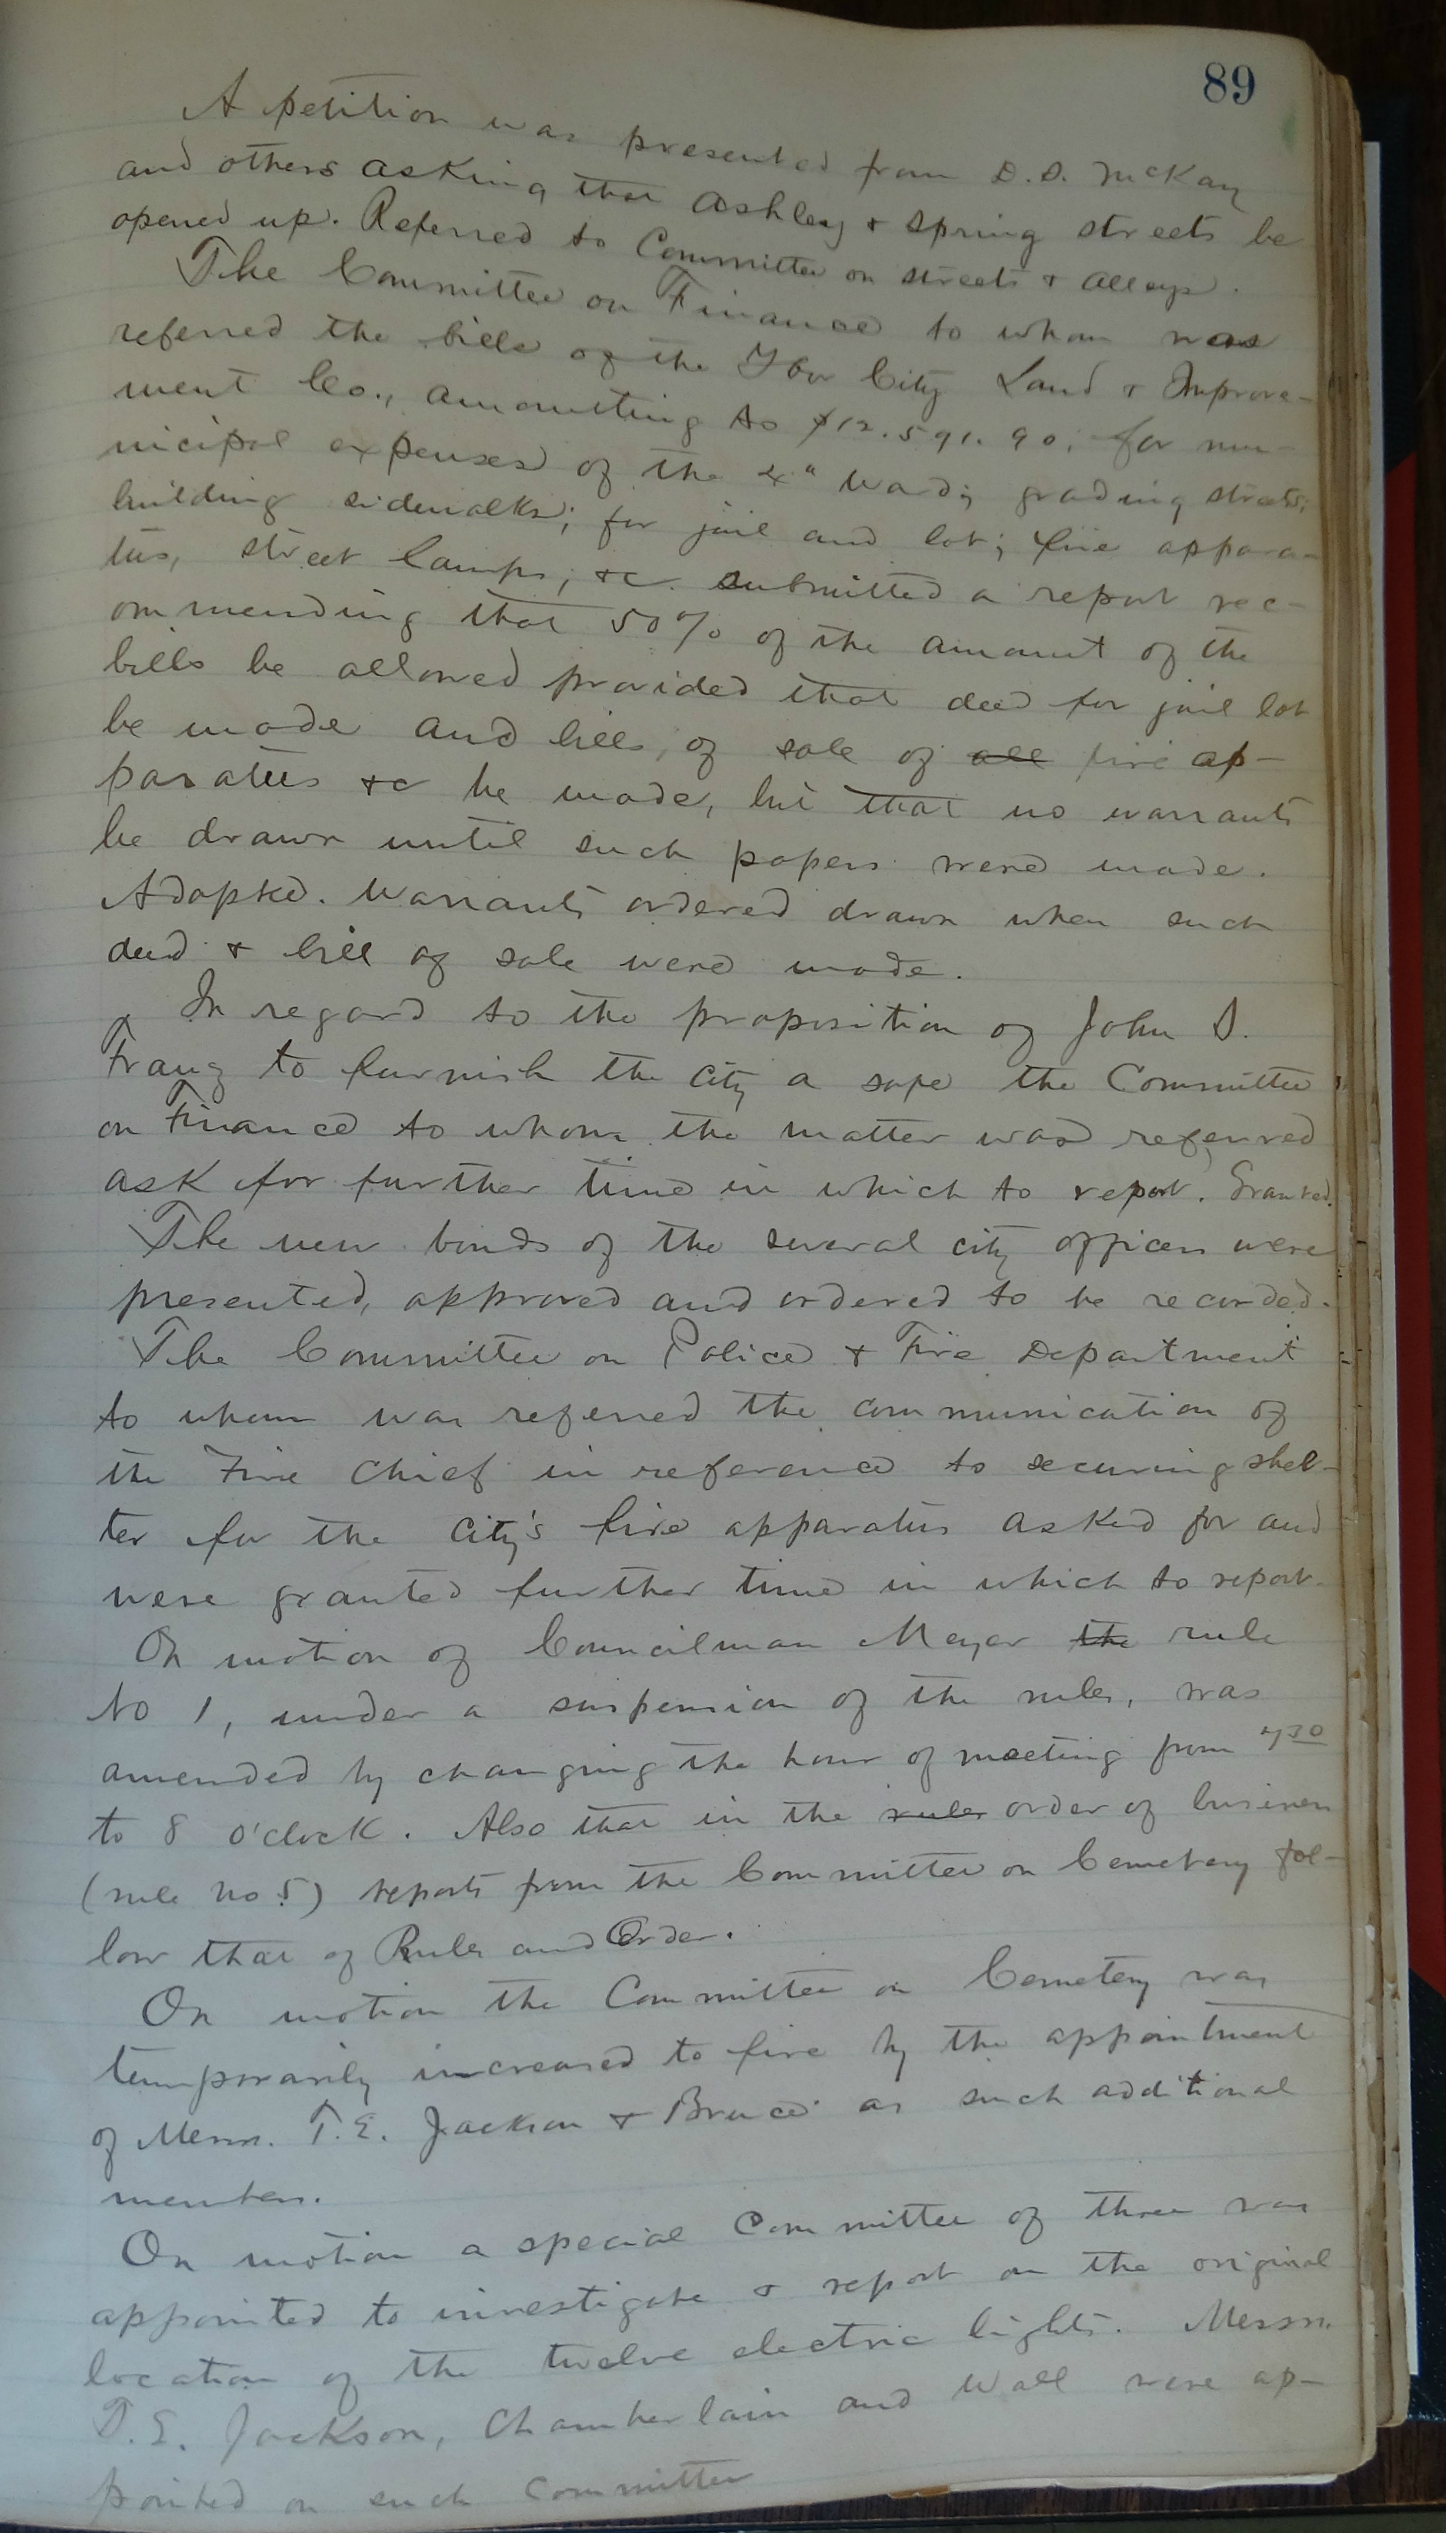 89
A petition was presented from D.S. McKay
and others asking that Ashley & Spring streets be
opened up. Referred to Committee on streets & alleys.
The Committee on Finance to whom was
referred the bills of the Ybor City Land & Improve-
ment Co., amounting to $12.591.90, for mu-
nicipal expenses of the 4" Ward; grading streets;
building sidewalks; for jail and lot; fire appara-
tus, street lamps, &c. submitted a report rec-
ommending that 50% of the amount of the
bills be allowed provided that deed for jail lot
be made and bills, of sale of all fire ap-
paratus &c be made, but that no warrants
be drawn until such papers were made.
Adopted. Warrants ordered drawn when such
deed & bill of sale were made.
In regard to the proposition of John S.
to furnish the city a safe the Committee
on Finance to whom the matter was referred
ask for further time in which to report. Granted.
The new bonds of the several city officers were
presented, approved and ordered to be recorded.
The Committee on Police & Fire Department
to whom was referred the communication of
the Fire Chief in reference to securing shel-
ter for the City's fire apparatus asked for and
were granted further time in which to report.
On motion of Councilman Meyer the rule
No 1, under a suspension of the rules, was
amended by changing the hour of meeting from 730
to 8 o'clock. Also that in the rules order of business
(rule no 5) reports from the Committee on Cemetery fol-
low that of Rules and Order.
On motion the Committee on Cemetery was
temporarily increased to five by the appointment
of Messrs. T.E. Jackson & Bruce as such additional
members.
On motion a special Committee of three was
appointed to investigate & report on the original
location of the twelve electric lights. Messrs.
T.E. Jackson, Chamberlain and Wall were ap-
pointed on such Committee